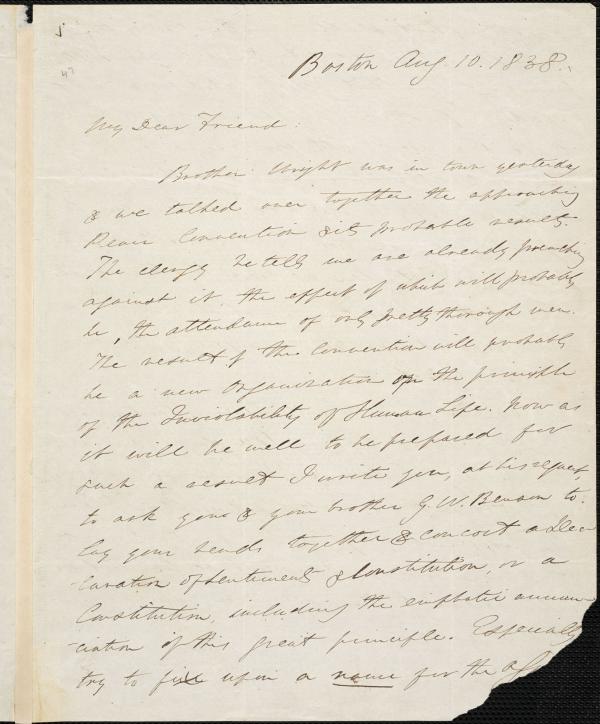 47
Boston Aug. 10. 1838.
My Dear Friend:
Brother Wright was in town yesterday
& we talked over together the approaching
Peace Convention & its probable results.
The clergy he tells me are already preaching
against it, the effect of which will probably
be, the attendance of only pretty thorough men.
The result of the Convention will probably
be a new Organization on the principle
of the Inviolability of Human Life. Now as
it will be well to be prepared for
such a result I write you, at his request,
to ask you & your brother G. W. Benson to
lay your heads together & concoct a Dec-
laration of Sentiments & Constitution, or a
Constitution, including the emphatic annun-
ciation of this great principle. Especially
try to fix upon a name for the